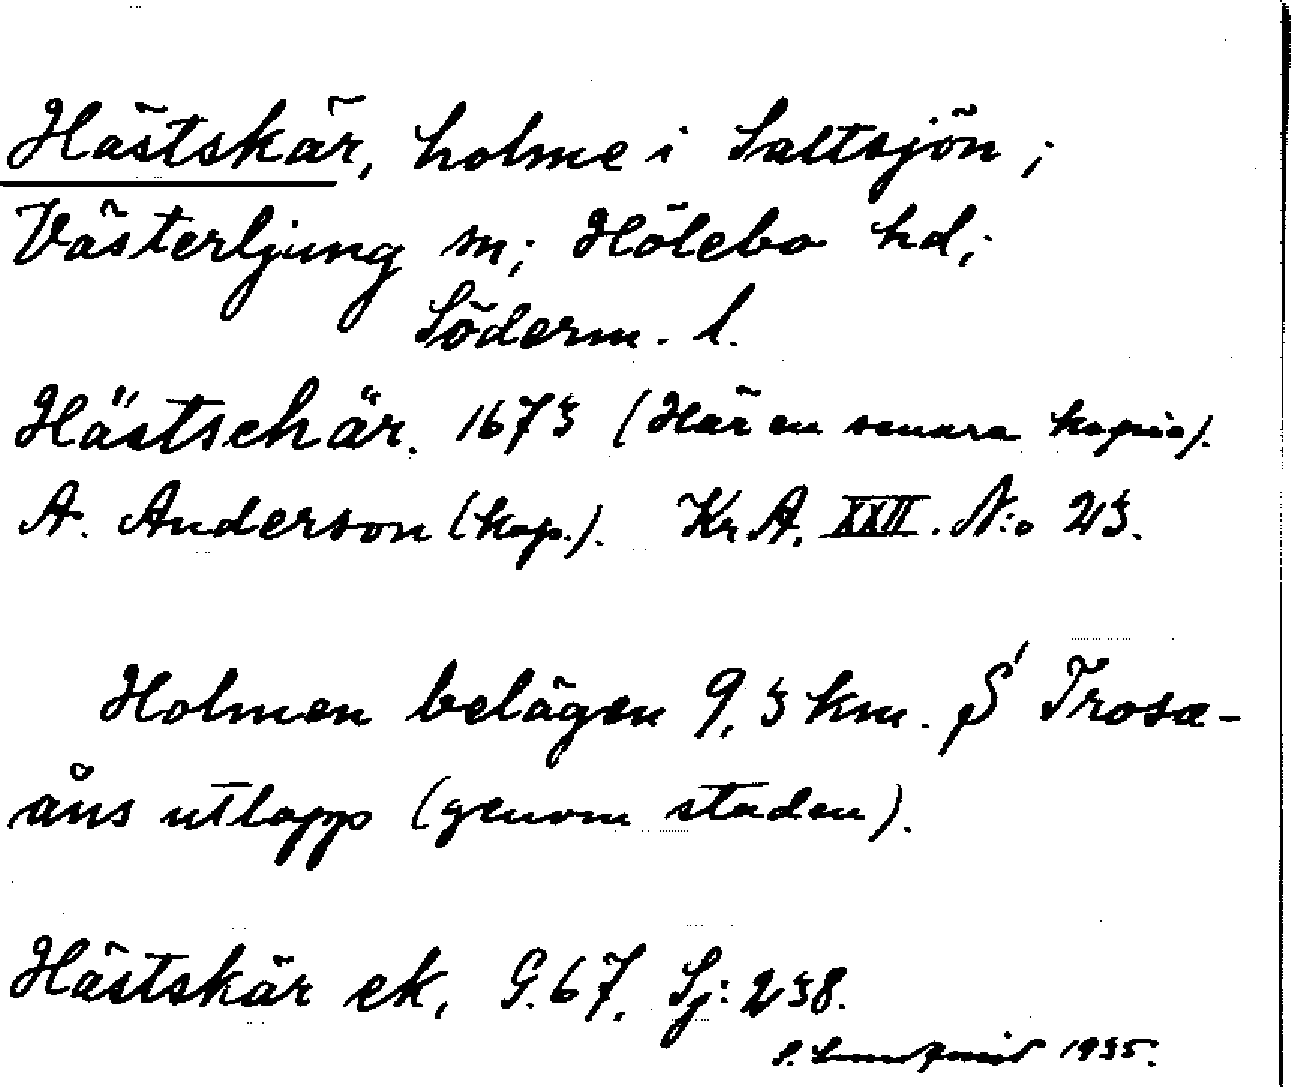 Hästskär, holme i Saltsjön;
Västerljung sn; Hölebo hd;
Söderm. l.
Hästschär. 1673 (Här en senare kopia).
A. Anderson (kop.). Kr. A. XXII. N:o 23.
Holmen belägen 9,3 km. S Trosa-
åns utlopp (genom staden).
Hästskär ek. G. 67. Sj: 238.
S. 1935.